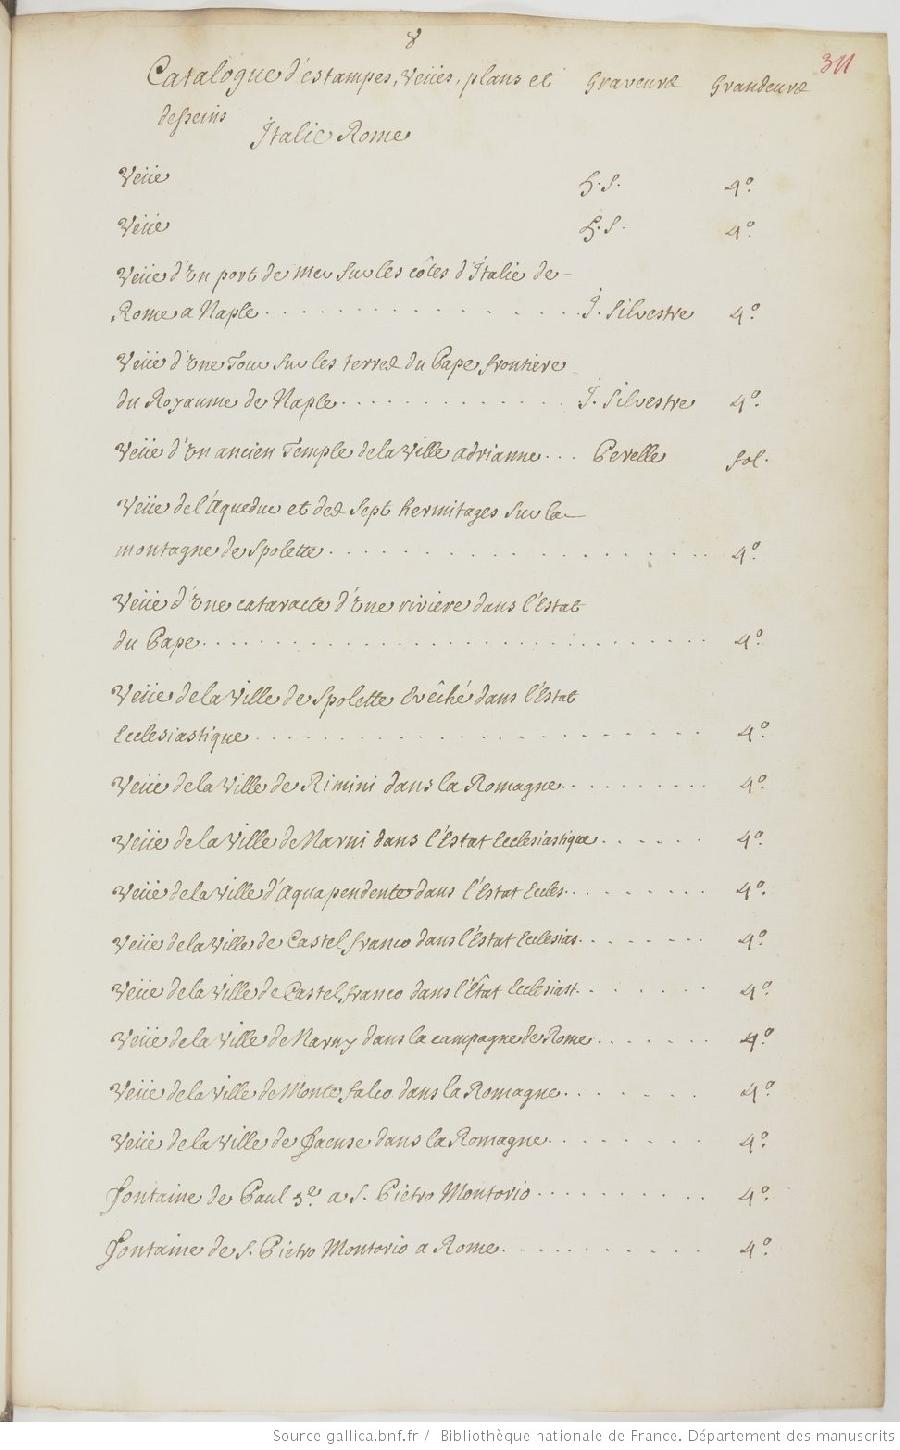 8
311
Catalogue d'estampes, Veües, plans et Graveurs Grandeurs
desseins
Italie Rome
Veüe H. S. 4°.
Veüe H. S. 4°
Veüe d'un port de mer sur les côtes d'Italie de
Rome a Naple J. Silvestre 4°
Veüe d'une Tour sur les terres du Pape frontiere
du Royaume de Naple J. Silvestre 4°.
Veüe d'un ancien Temple de la Ville adrianne Perelle fol.
Veüe de l'Aqueduc et des Sept hermitages sur la
montagne de Spolette 4°.
Veüe d'une cataracte d'une riviere dans l'Estat
du Pape 4°.
Veüe de la Ville de Spolette Evêché dans l'Estat
Ecclesiastique 4°.
Veüe de la Ville de Rimini dans la Romagne 4°.
Veüe de la Ville de Narni dans l'Estat Ecclesiastique 4°.
Veüe de la Ville d'Aquapendente dans l'Estat Eccles. 4°.
Veüe de la Ville de Castel franco dans l'Estat Ecclesias. 4°.
Veüe de la Ville de Castel franco dans l'Êtat Ecclesiast. 4°.
Veüe de la Ville de Narny dans la campagne de Rome 4°.
Veüe de la Ville de Monte falco dans la Romagne 4°.
Veüe de la Ville de Faense dans la Romagne 4°.
Fontaine de Paul 5.e a S. Pietro Montorio 4°.
Fontaine de S. Pietro Montorio a Rome 4°.
Source gallica.bnf.fr / Bibliothèque nationale de France. Département des manuscrits